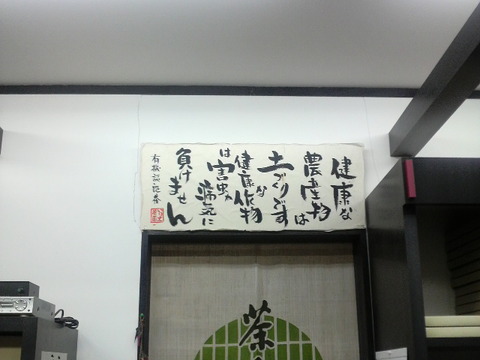 健康な
農産物は
土づくりです
健康な作物
は害虫や病気に
負けません
茶